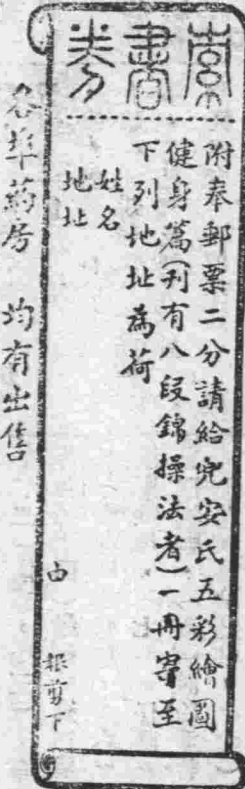 索書券
附奉郵票二分請給兜安氏五彩繪圖
健身篇(刊有八段錦操法者)一冊寄至
下列地址為荷
姓名
地址
由 報剪下
各埠藥房 均有出售